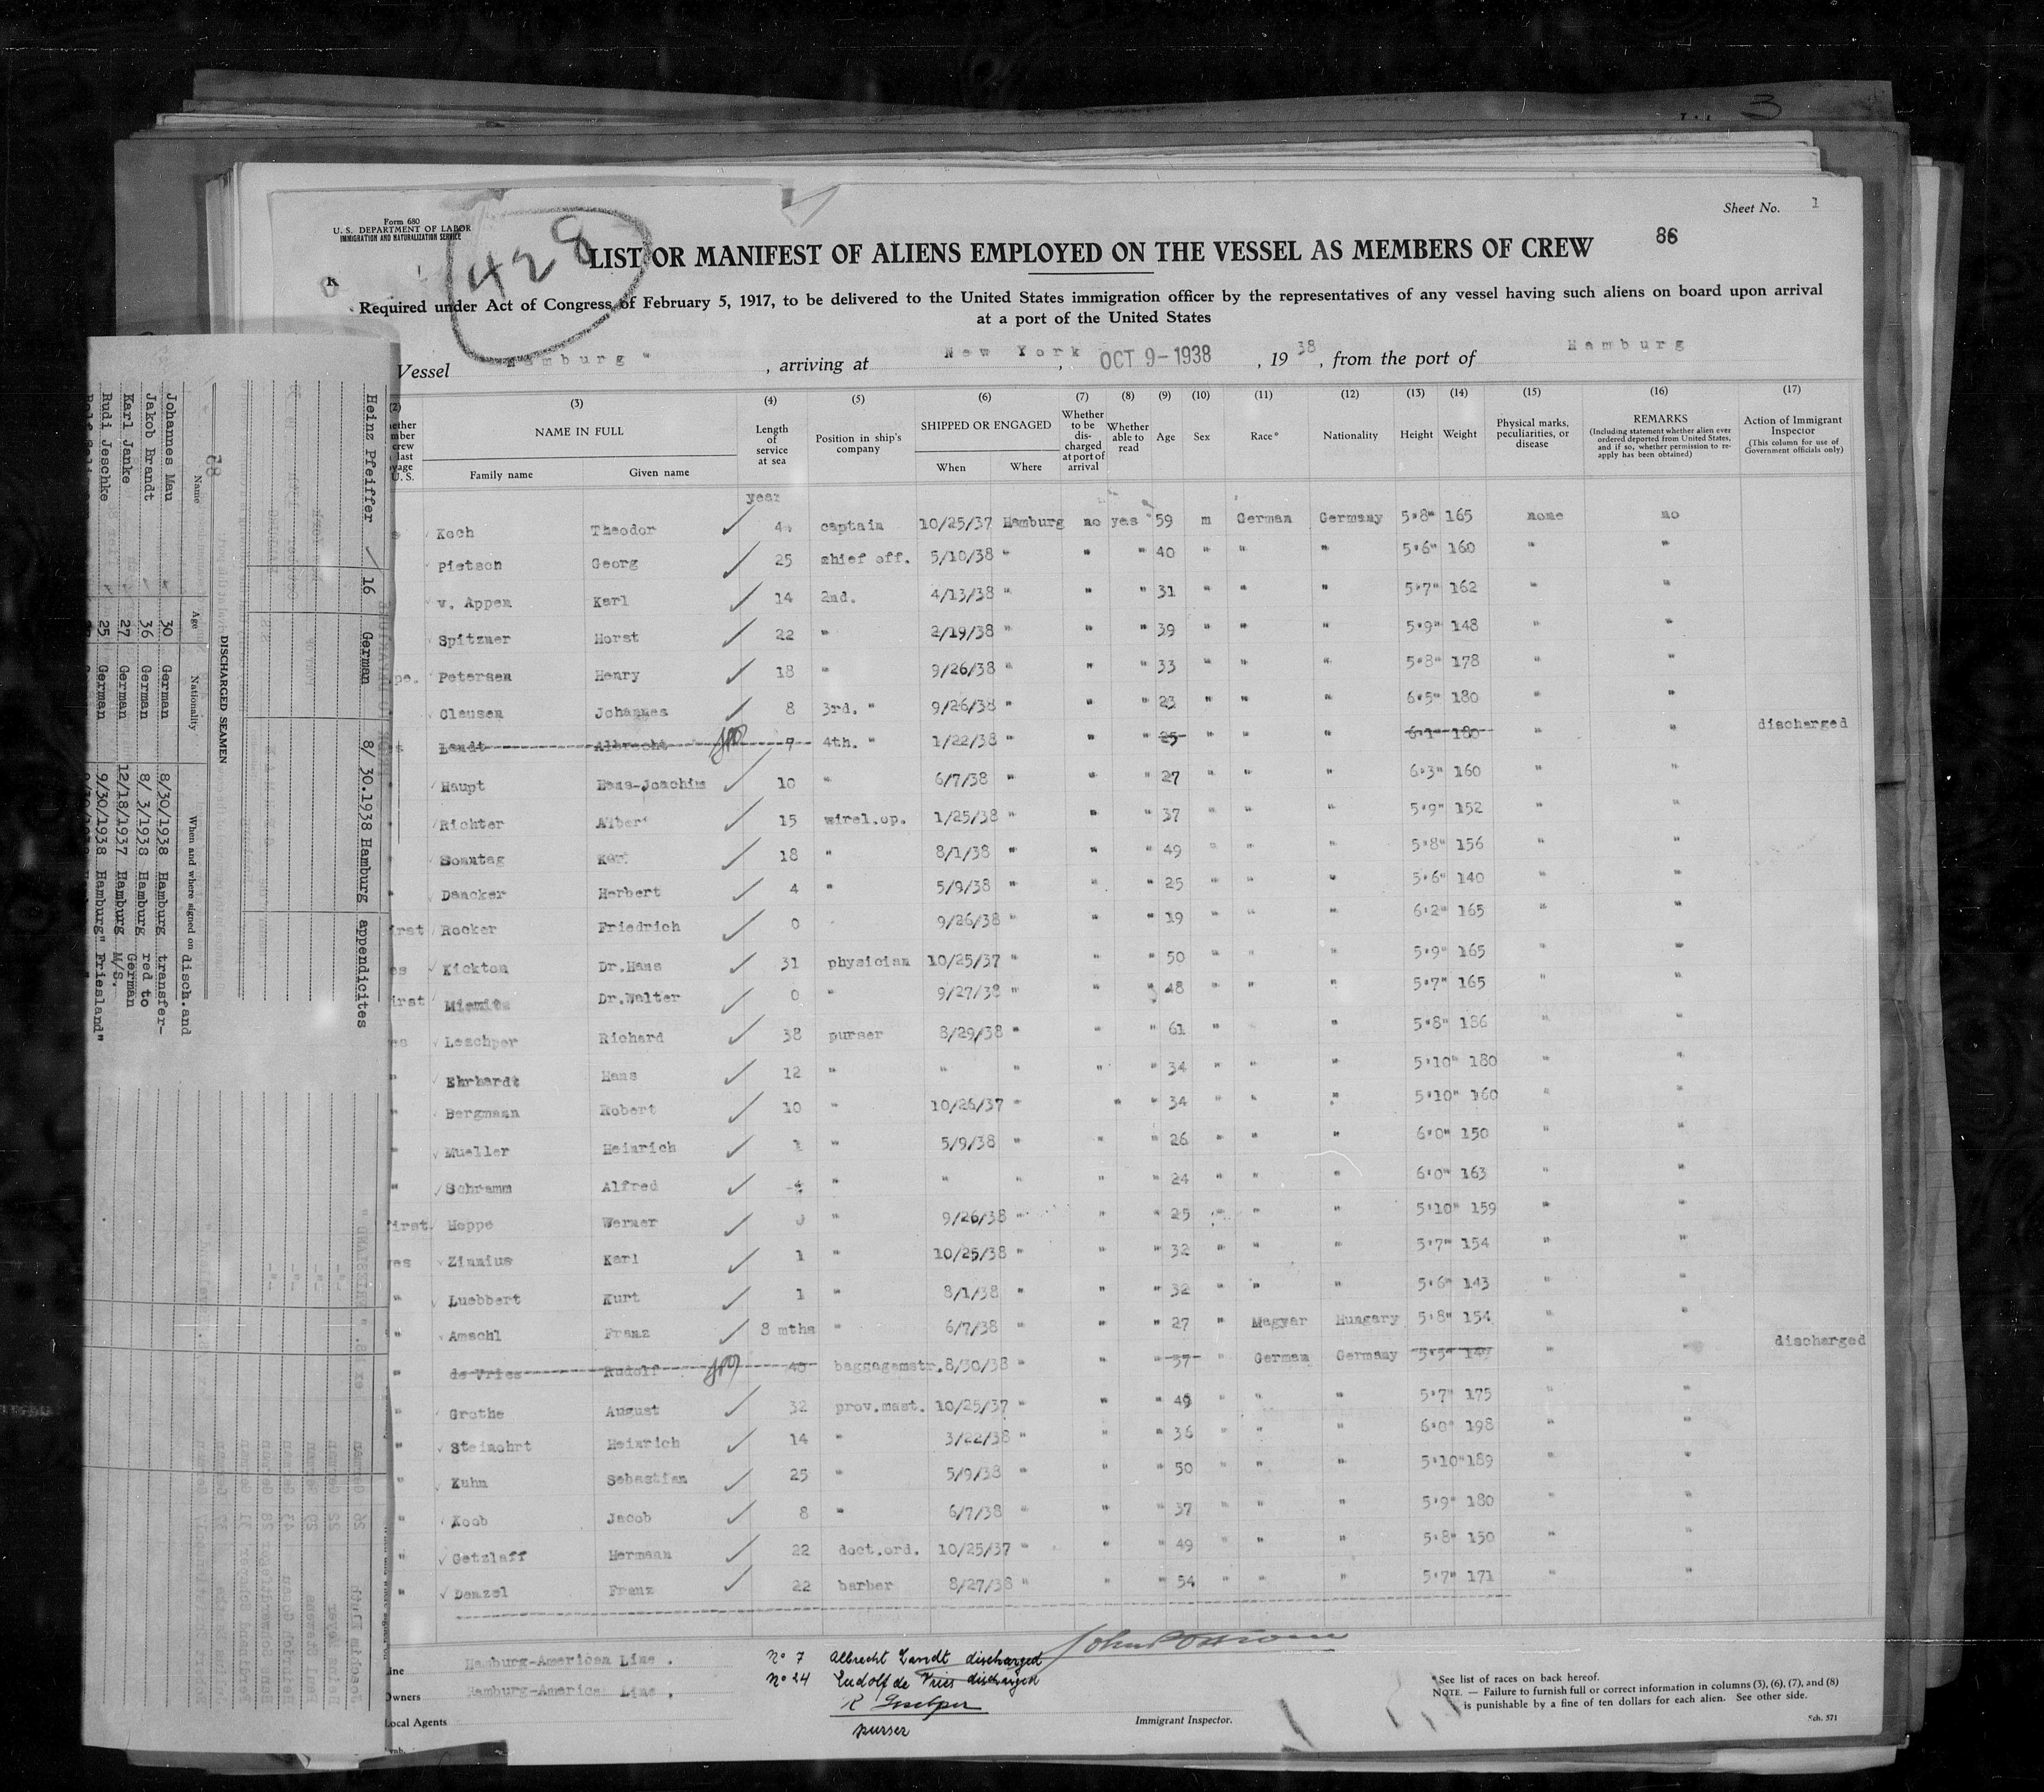 3
Sheet No. 1
Form 680
U. S. DEPARTMENT OF LABOR
IMMIGRATION AND NATURALIZATION SERVICE
428
86
LIST OR MANIFEST OF ALIENS EMPLOYED ON THE VESSEL AS MEMBERS OF CREW
Required under Act of Congress of February 5, 1917, to be delivered to the United States immigration officer by the representatives of any vessel having such aliens on board upon arrival
at a port of the United States
Vessel Hamburg" , arriving at New York , OCT 9-1938 , 1938 , from the port of Hamburg
(2) (3) (4) (5) (6) (7) (8) (9) (10) (11) (12) (13) (14) (15) (16) (17)
NAME IN FULL Length of service at sea Position in ship's company SHIPPED OR ENGAGED Whether to be discharged at port of arrival Whether able to read Age Sex Race* Nationality Height Weight Physical marks, peculiarities, or disease REMARKS (Including statement whether alien ever ordered deported from United States, and if so, whether permission to reapply has been obtained) Action of Immigrant Inspector (This column for use of Government officials only)
Family name Given name When Where
year
Koch Theodor 4 captain 10/25/37 Hamburg no yes 59 m German Germany 5'8" 165 none no
Pietsch Georg 25 chief off. 5/10/38 " " " 40 " " " 5'6" 160 " "
v. Appen Karl 14 2nd. 4/13/38 " " " 31 " " " 5'7" 162 " "
Spitzner Horst 22 " 2/19/38 " " " 39 " " " 5'9" 148 " "
Petersen Henry 18 " 9/26/38 " " " 33 " " " 5'8" 178 " "
Clausen Johannes 8 3rd. " 9/26/38 " " " 23 " " " 6'5" 180 " "
Landt Albrecht 7 4th. " 1/22/38 " " " 25 " " " 6'1" 180 " " discharged
Haupt Hans-Joachim 10 " 6/7/38 " " " 27 " " " 6'3" 160 " "
Richter Albert 15 wirel.op. 1/25/38 " " " 37 " " " 5'9" 152 " "
Sonntag 18 " 8/1/38 " " " 49 " " " 5'8" 156 " "
Dancker Herbert 4 " 5/9/38 " " " 25 " " " 5'6" 140 " "
Rocker Friedrich 0 " 9/26/38 " " " 19 " " " 6'2" 165 " "
Kickton Dr.Hans 31 physician 10/25/37 " " " 50 " " " 5'9" 165 " "
Dr.Walter 0 " 9/27/38 " " " 48 " " " 5'7" 165 " "
Leschper Richard 38 purser 8/29/38 " " " 61 " " 5'8" 186 " "
" Ehrhardt Hans 12 " " " " " 34 " " " 5'10" 180 " "
" Bergmann Robert 10 " 10/26/37 " " " 34 " " " 5'10" 160 " "
" Mueller Heinrich " 5/9/38 " " " 26 " " " 6'0" 150 " "
" Schramm Alfred " " " " " 24 " " " 6'0" 163 " "
Hoppe Werner " 9/26/38 " " " 25 " " " 5'10" 159 " "
Zinnius Karl 1 " 10/25/38 " " " 32 " " " 5'7" 154 " "
" Luebbert Kurt 1 " 8/1/38 " " " 32 " " " 5'6" 143 " "
" Amschl Franz 3 mths " 6/7/38 " " " 27 " Magyar Hungary 5'8" 154 " "
" de Vries Rudolf 40 baggagemstr. 8/30/38 " " " 57 " German Germany 5'5" " " discharged
" Grothe August 32 prov.mast. 10/25/37 " " " 49 " " " 5'7" 175 " "
" Steinohrt Heinrich 14 " 3/22/38 " " " 36 " " " 6'0" 198 " "
" Kuhn Sebastian 25 " 5/9/38 " " " 50 " " " 5'10" 189 " "
" Koob Jacob 8 " 6/7/38 " " " 37 " " " 5'9" 180 " "
" Getzlaff Hermann 22 doct.ord. 10/25/37 " " " 49 " " " 5'8" 150 " "
" Denzel Franz 22 barber 8/27/38 " " " 54 " " " 5'7" 171 " "
Line Hamburg-American Line .
Owners Hamburg-American Line .
Local Agents
No 7 Albrecht Landt discharged
No 24 Rudolf de Vries discharged
R Leschper
purser
Immigrant Inspector.
*See list of races on back hereof.
NOTE. — Failure to furnish full or correct information in columns (3), (6), (7), and (8)
is punishable by a fine of ten dollars for each alien. See other side.
Sch. 571
Heinz Pfeiffer 16 German 8/ 30.1938 Hamburg appendicites
DISCHARGED SEAMEN
38
Name Age Nationality When and where signed on disch.and
Johannes Mau 30 German 8/30/1938 Hamburg transfer-
Jakob Brandt 36 German 8/ 3/1938 Hamburg red to
Karl Janke 27 German 12/18/1937 Hamburg German M/S.
Rudi Jeschke 25 German 9/30/1938 Hamburg "Friesland"